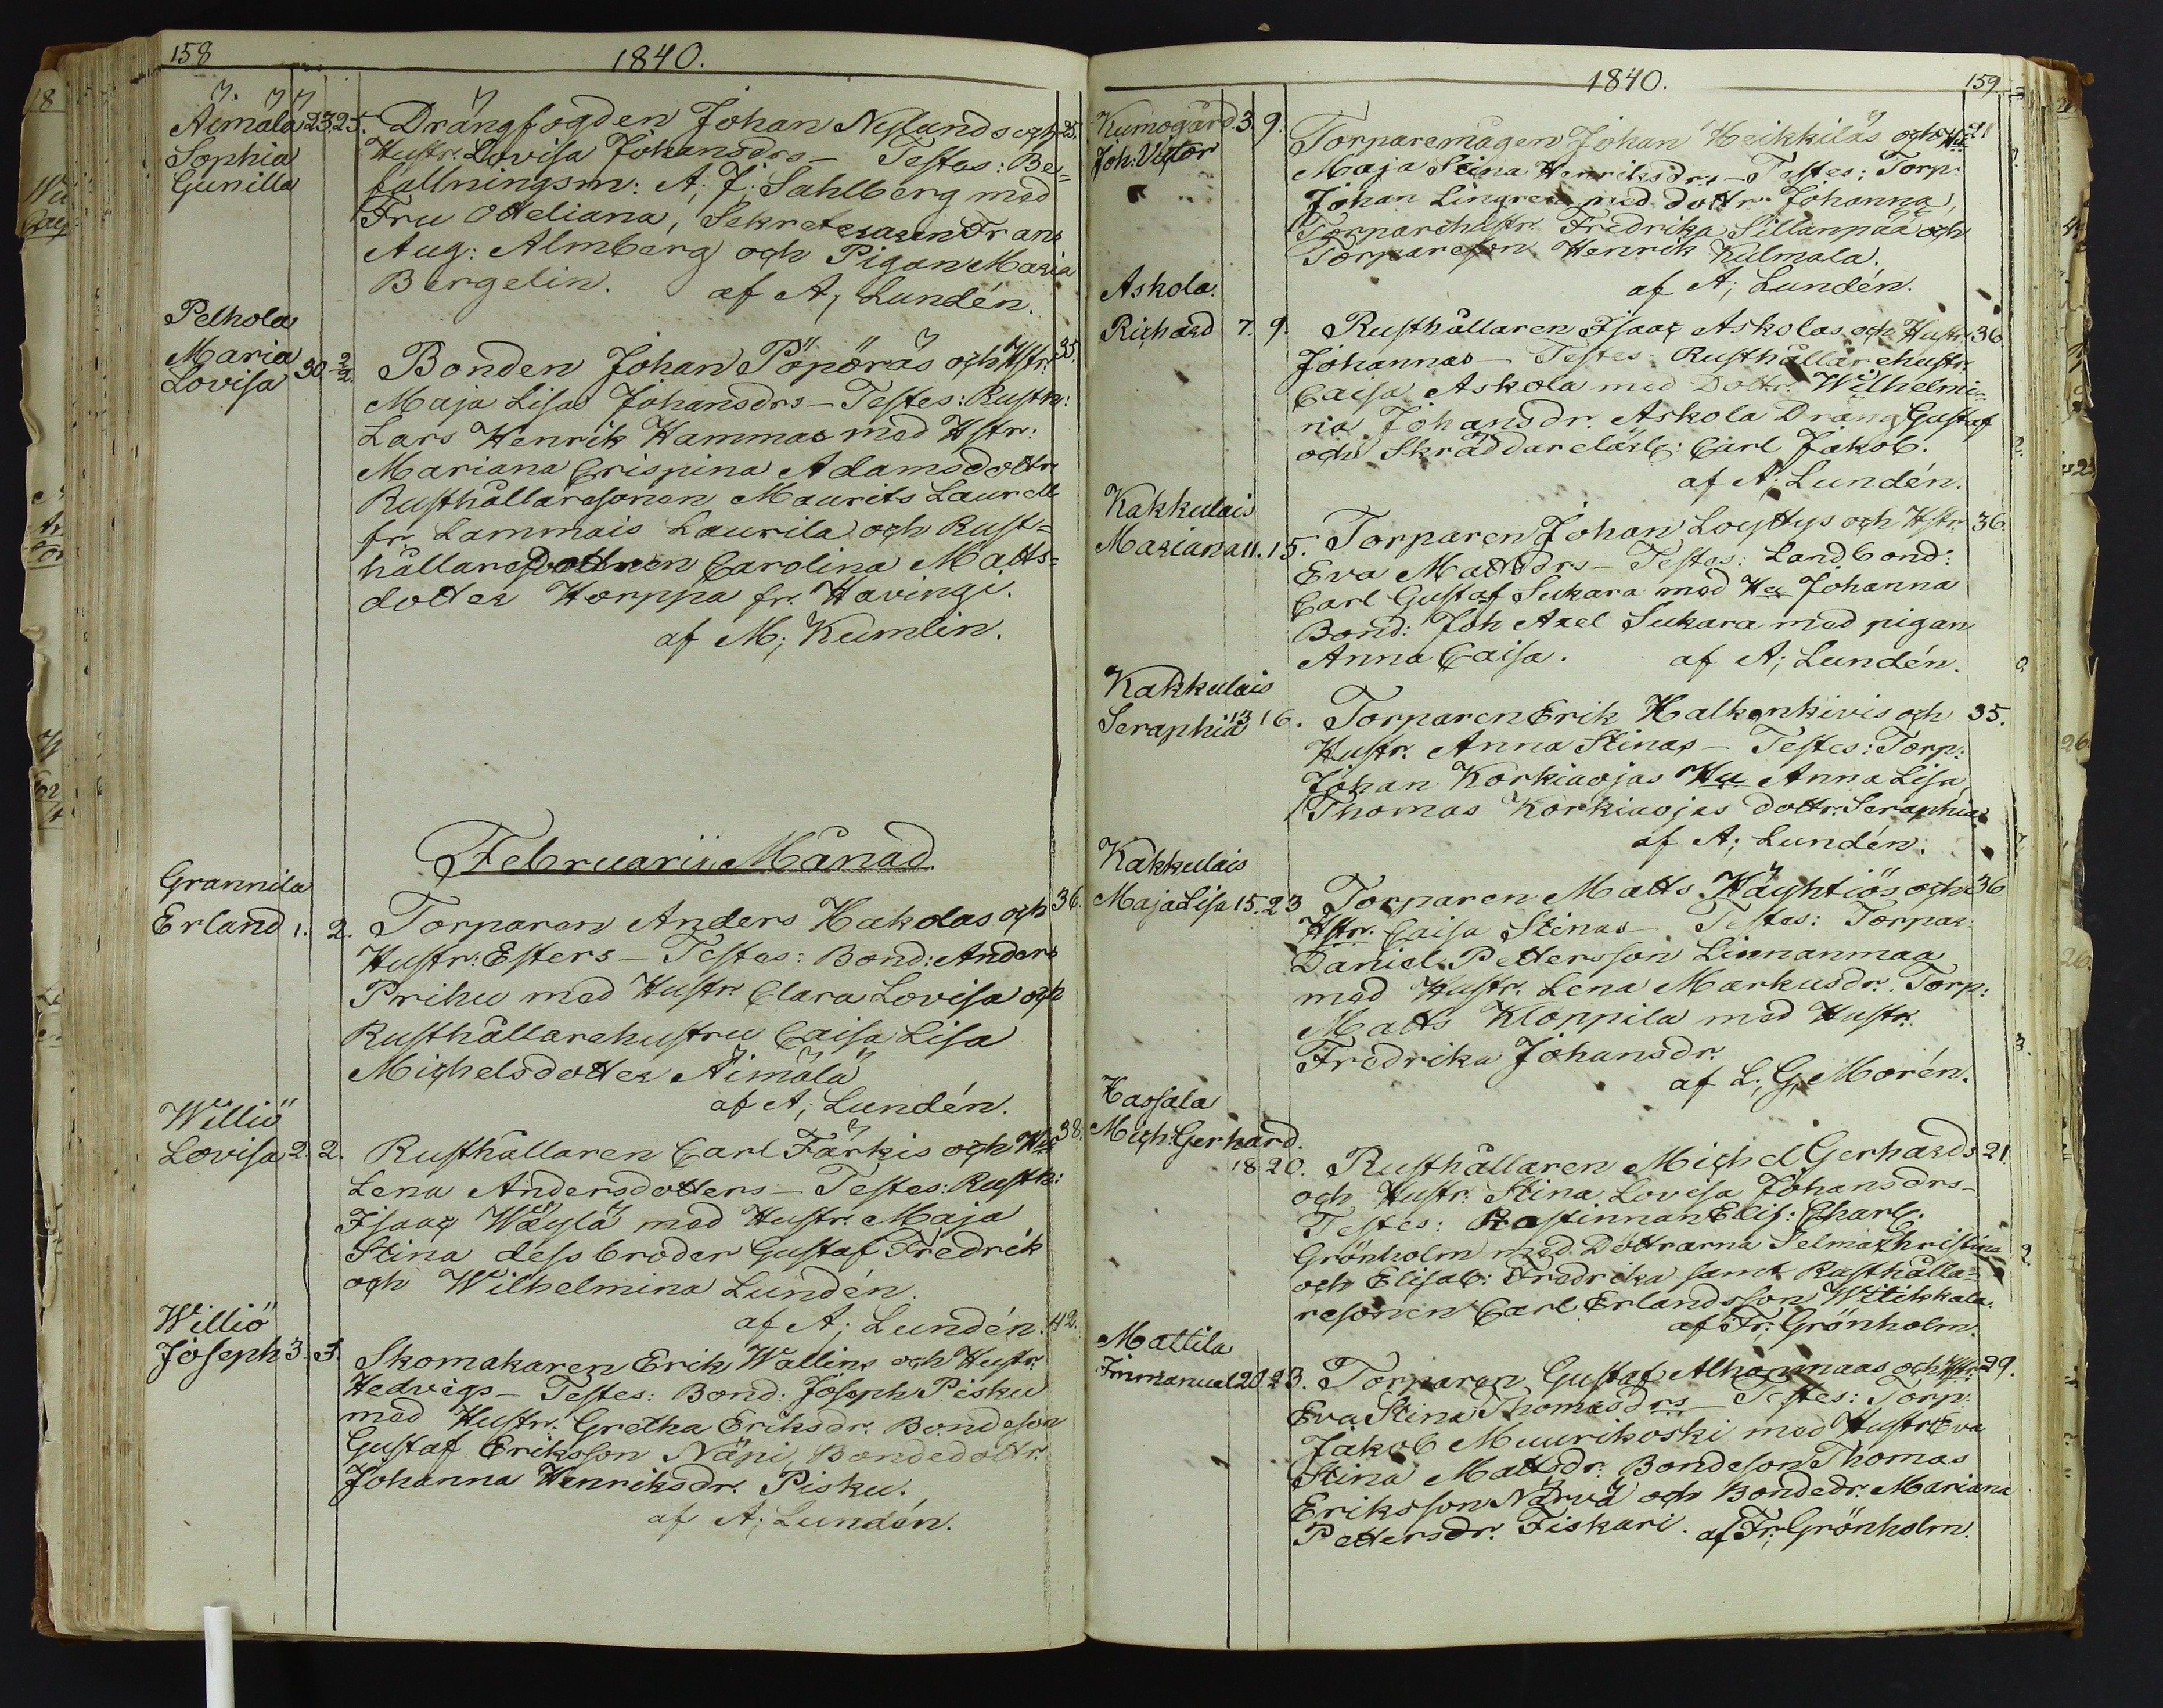 158
1840.
Äimälä 23. 25. Drängfogden Johan Nylunds och 25.
Sophia Hustr. Lovisa Johansdrs – Testes: Be=
Gunilla fallningsm: A. J. Sahlberg med
Fru Otteliana, Sekreteraren Frans
Aug: Almberg och Pigan Maria
Bergelin. af A; Lundén.
Pelhola
Maria 30. 2/2. Bonden Johan Pöpöräs och Hstr. 35.
Lovisa
Maja Lisas Johansdrs – Testes: Rusth:
Lars Henrik Hammas med Hstr:
Mariana Crispina Adamsdottr
Rusthållaresonen Maurits Laurell
fr. Lammais Laurila och Rust=
hållaredottren Carolina Matts=
dotter Horppa fr. Havingi.
af M; Kumlin.
Februarii Månad
Grannila
Erland 1. 2. Torparen Anders Hakolas och 36.
Hustr: Esters – Testes: Bond: Anders
Prihu med Hustr. Clara Lovisa och
Rusthållarehustru Caisa Lisa
Michelsdotter Äimälä
af A; Lundén.
Williö
Lovisa 2. 2. Rusthållaren Carl Färkis och Hu 38.
Lena Andersdotters – Testes: Rusth:
Isaac Wäylä med Hustr. Maja
Stina dess broder Gustaf Fredrik
och Wilhelmina Lundén.
af A; Lundén.
Williö
Joseph 3. 3. Skomakaren Erik Wallins och Hustr. 42.
Hedvigs – Testes: Bond. Joseph Pisku
med Hustr. Gretha Eriksdr. Bondeson
Gustaf Eriksson Näpi, Bondedottr.
Johanna Henriksdr. Pisku.
af A; Lundén.
1840.
159
Kumogård. 3. 9. Torparemågen Johan Heikkiläs och Hu 21
Joh: Victor Maja Stina Henriksdrs – Testes: Torp:
Johan Lingren med dottr. Johanna,
Torparehustr. Fredrika Sillanpää och
Torpareson Henrik Kulmala.
af A; Lundén.
Askola.
Richard 7. 9. Rusthållaren Isaac Askolas och Hustr. 36.
Johannas – Testes: Rusthållarehustr.
Caisa Askola med Dottr. Wilhelmi=
na Johansdr. Askola Dräng Gustaf
och Skräddarelärl: Carl Jakob.
af A. Lundén.
Kakkulais
Mariana 11. 15. Torparen Johan Loyttys och Hstr. 36.
Eva Mattsdrs – Testes: Landbond:
Carl Gustaf Sukara med Hu Johanna
Bond: Joh Axel Sukara med pigan
Anna Caisa. af A; Lundén.
Kakkulais
Seraphia 13 16. Torparen Erik Halkenkivis och 35.
Hustr. Anna Stinas – Testes: Torp:
Johan Korkiaojas Hu Anna Lisa,
Thomas Korkiaojas dottr. Seraphia
af A; Lundén.
Kakkulais
Maja Lisa 15. 23 Torparen Matts Häyhtiös och 36
Hstr. Caisa Stinas – Testes: Torpar:
Daniel Pettersson Linnanmaa
med Hustr. Lena Markusdr. Torp:
Matts Kloppila med Hustr.
Fredrika Johansdr.
af L. G. Morén.
Hassala
Mich: Gerhard.
18 20. Rusthållaren Michel Gerhards 21.
och Hustr. Stina Lovisa Johansdrs –
Testes: Prostinnan Elis: Charl:
Grönholm med Döttrarna Selma Christina
och Elisab: Fredrika samt Rusthålla=
resonen Carl Erlandsson Witikkala.
af Fr: Grönholm.
Mattila
Immanuel 20. 23. Torparen Gustaf Alhonmaas och Hstr. 29.
Eva Stina Thomasdrs – Testes: Torp:
Jakob Muurikoski med Hustr Eva
Stina Mattsdr. Bondeson Thomas
Eriksson Närvä och Bondedr. Mariana
Pettersdr. Fiskari. af Fr. Grönholm.